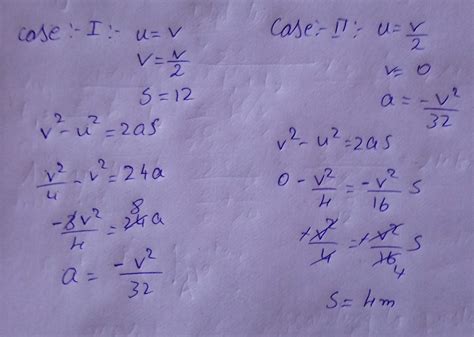 Case :- I :- u = v
v = v/2
s = 12
v² - u² = 2as
v²/4 - v² = 24a
-3v²/4 = 24a 8
a = -v²/32
Case :- II :- u = v/2
v = 0
a = -v²/32
v² - u² = 2as
0 - v²/4 = -v²/16 s
+v²/4 = +v²/16 s 4
s = 4m